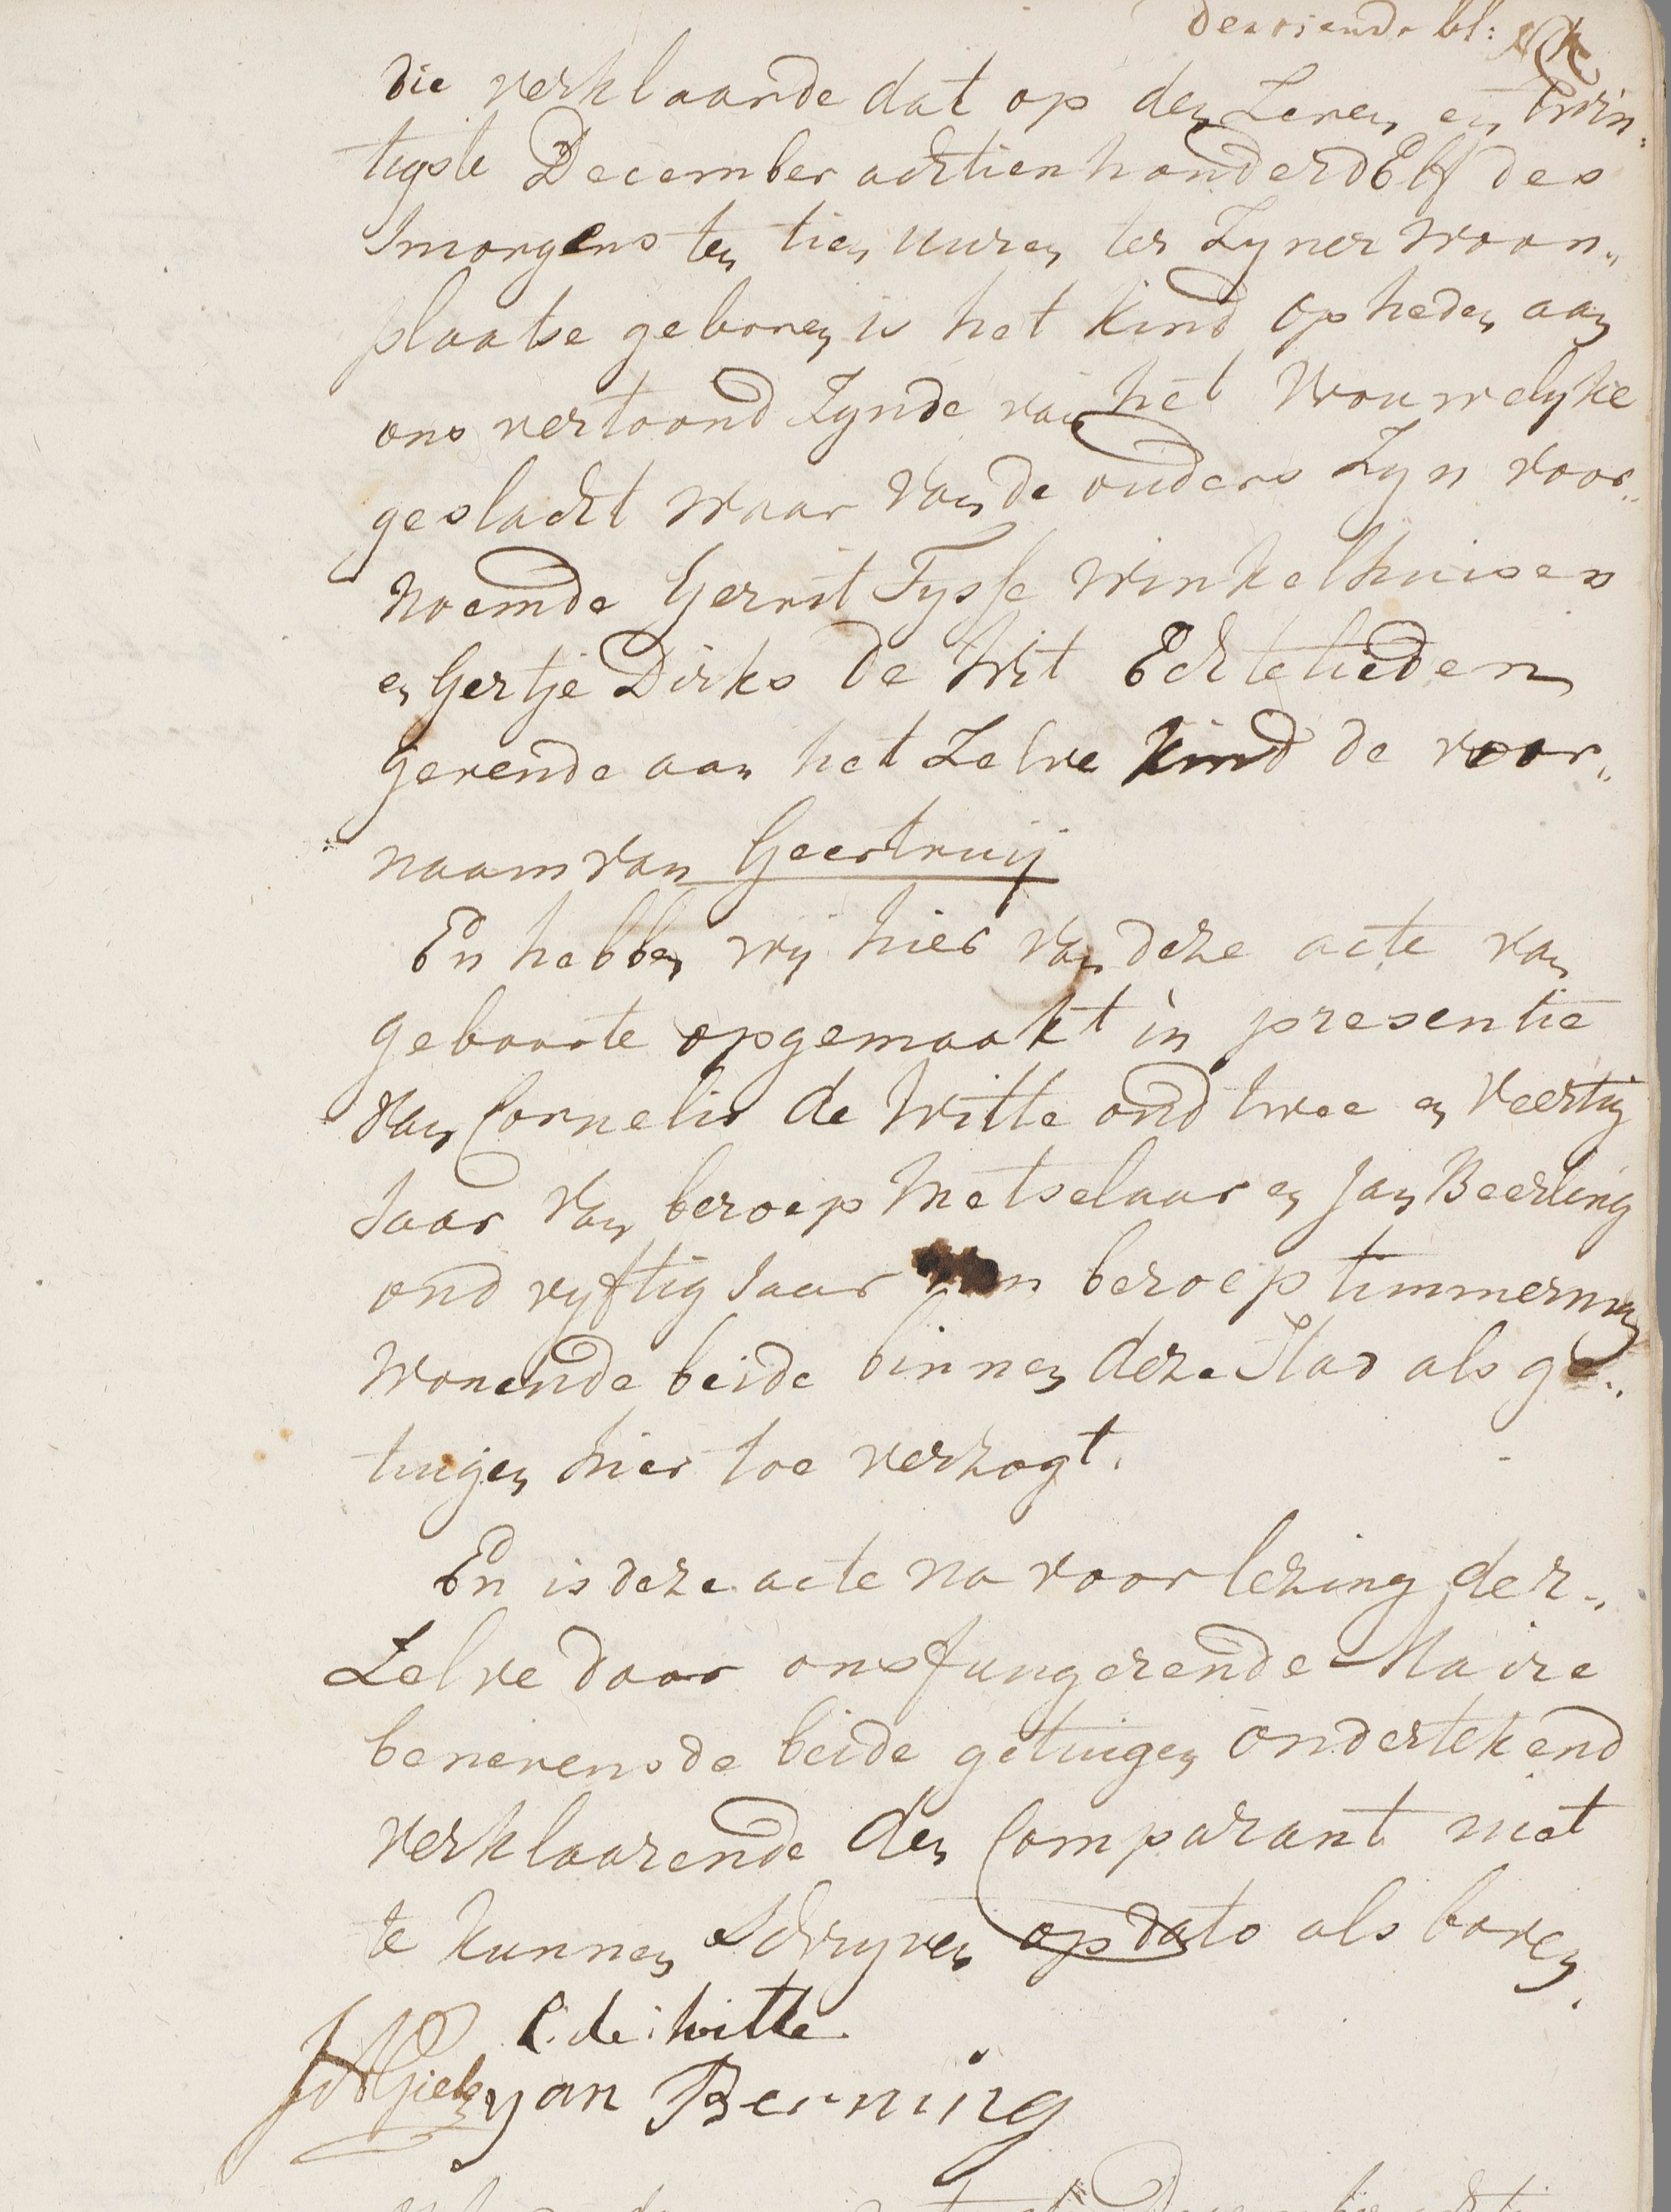 Dertiende bl:
die verklaarde dat op den Zeven en twin„
tigste December achtienhonderdElf des
Smorgens ten tien uuren ter Zyner woon„
plaatse geboren is het kind op heden aan
ons vertoond Zynde van het Vrouwelyke
geslacht waar van de ouders Zyn voor„
noemde Gerrit Tysse Winkelhuisen
en Gertje Dirks de Wit Echtelieden
gevende aan het Zelve kind de voor„
naam van Geertruij
En hebben wij hier van deze acte van
geboorte opgemaakt in presentie
van Cornelis de Witte oud twee en veertig
Jaar van beroep Metselaar en Jan Beerling
oud vyftig Jaar van beroep timmerman
Wonende beide binnen deze Stad als ge„
tuigen hier toe verzogt.
En is deze acte na voorlezing der„
Zelve door ons fungerende Maire
benevens de beide getuigen ondertekend
verklaarende den Comparant niet
te kunnen Schryven op dato als boven.
C. de Witte.
yan Berning